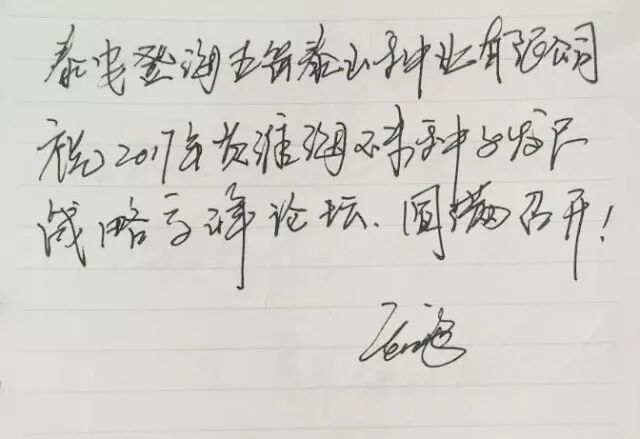 泰安登海五岳泰山种业有限公司
祝2017年黄淮海种子发展
战略高峰论坛、圆满召开！